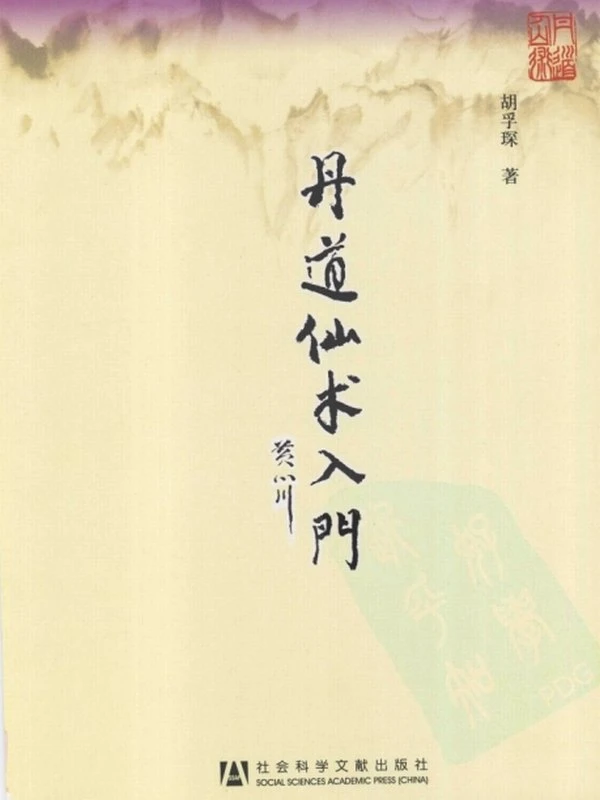 丹道仙术
胡孚琛 著
丹道仙术入門
PDG
社会科学文献出版社
SOCIAL SCIENCES ACADEMIC PRESS (CHINA)